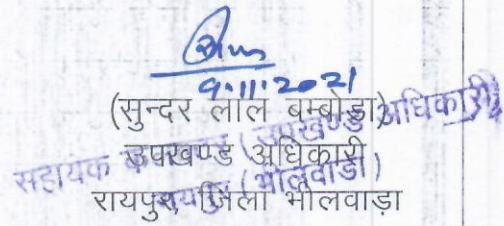 9.11.2021
(सुन्दर लाल बम्बोड़ा)
उपखण्ड अधिकारी
रायपुर, जिला भीलवाड़ा
सहायक (उपखण्ड अधिकारी)
रायपुर (भीलवाडा)